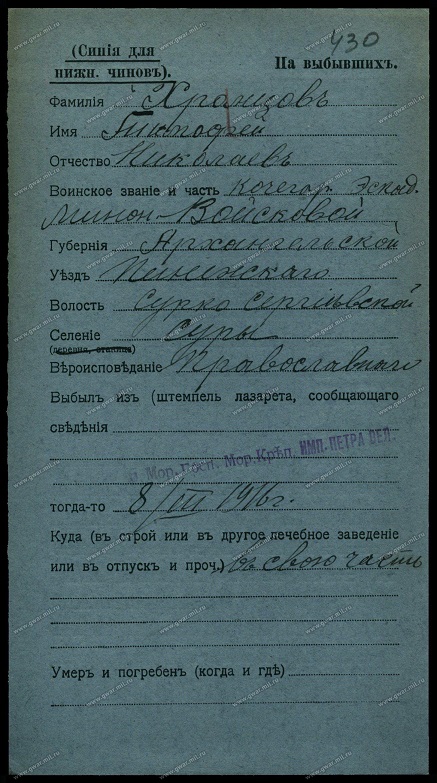 430
(Синія для
нижн. чиновъ).
На выбывшихъ.
Фамилія Хранцовъ
Имя Тимофей
Отчество Николаевъ
Воинское званіе и часть Кочегар. Эскад.
Минон-Войсковой
Губернія Архангельской
Уѣздъ Пинежскаго
Волость Сурко Сергіевской
Селеніе Суры
(деревня, станица)
Вѣроисповѣданіе Православнаго
Выбылъ изъ (штемпель лазарета, сообщающаго
свѣдѣнія
Мор. Госп. Мор. Крѣп. ИМП. ПЕТРА ВЕЛ.
тогда-то 8/III 1916 г.
Куда (въ строй или въ другое лечебное заведеніе
или въ отпускъ и проч.) въ свою часть
Умеръ и погребенъ (когда и гдѣ)
www.gwar.mil.ru